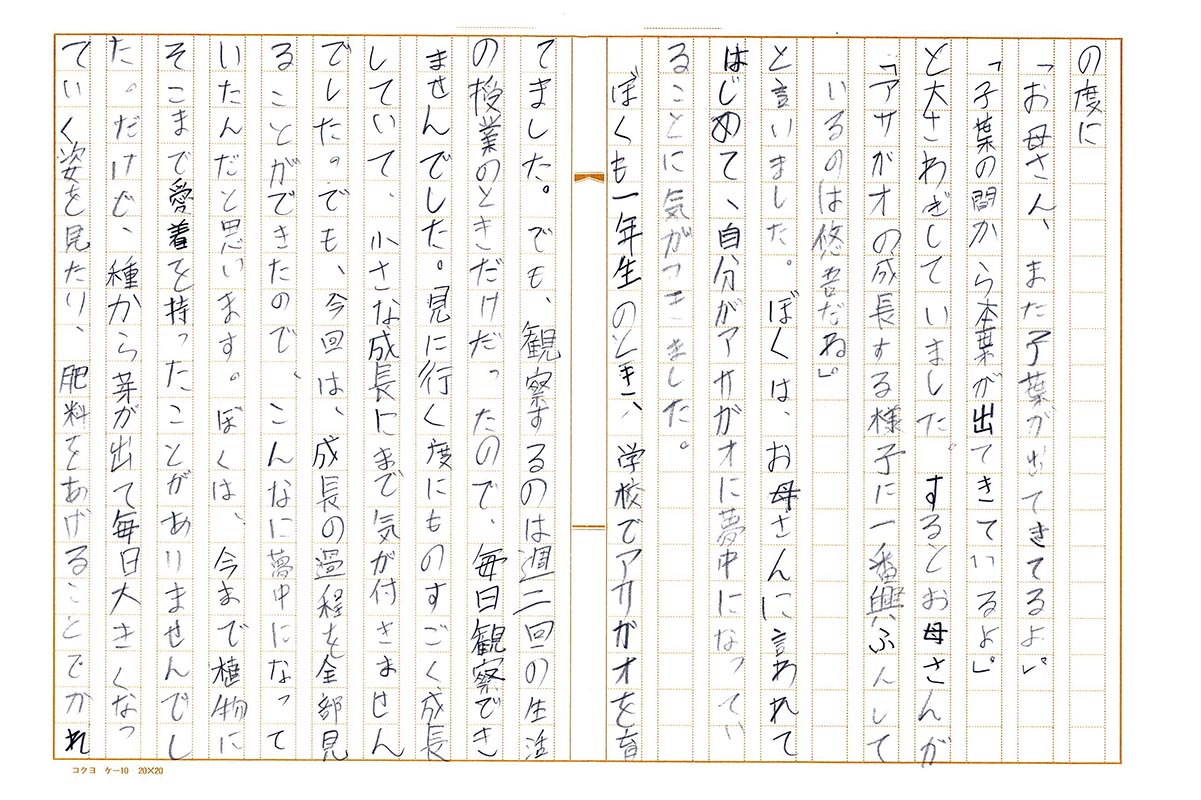 の度に
「お母さん、また子葉が出てきてるよ。」
「子葉の間から本葉が出てきているよ。」
と大さわぎしていました。するとお母さんが
「アサガオの成長する様子に一番興ふんして
いるのは悠吾だね。」
と言いました。ぼくは、お母さんに言われて
はじめて、自分がアサガオに夢中になってい
ることに気がつきました。
ぼくも一年生のとき、学校でアサガオを育
てました。でも、観察するのは週二回の生活
の授業のときだけだったので、毎日観察でき
ませんでした。見に行く度にものすごく成長
していて、小さな成長にまで気が付きません
でした。でも、今回は、成長の過程を全部見
ることができたので、こんなに夢中になって
いたんだと思います。ぼくは、今まで植物に
そこまで愛着を持ったことがありませんでし
た。だけど、種から芽が出て毎日大きくなっ
ていく姿を見たり、肥料をあげることでかれ
コクヨ ケ-10 20×20